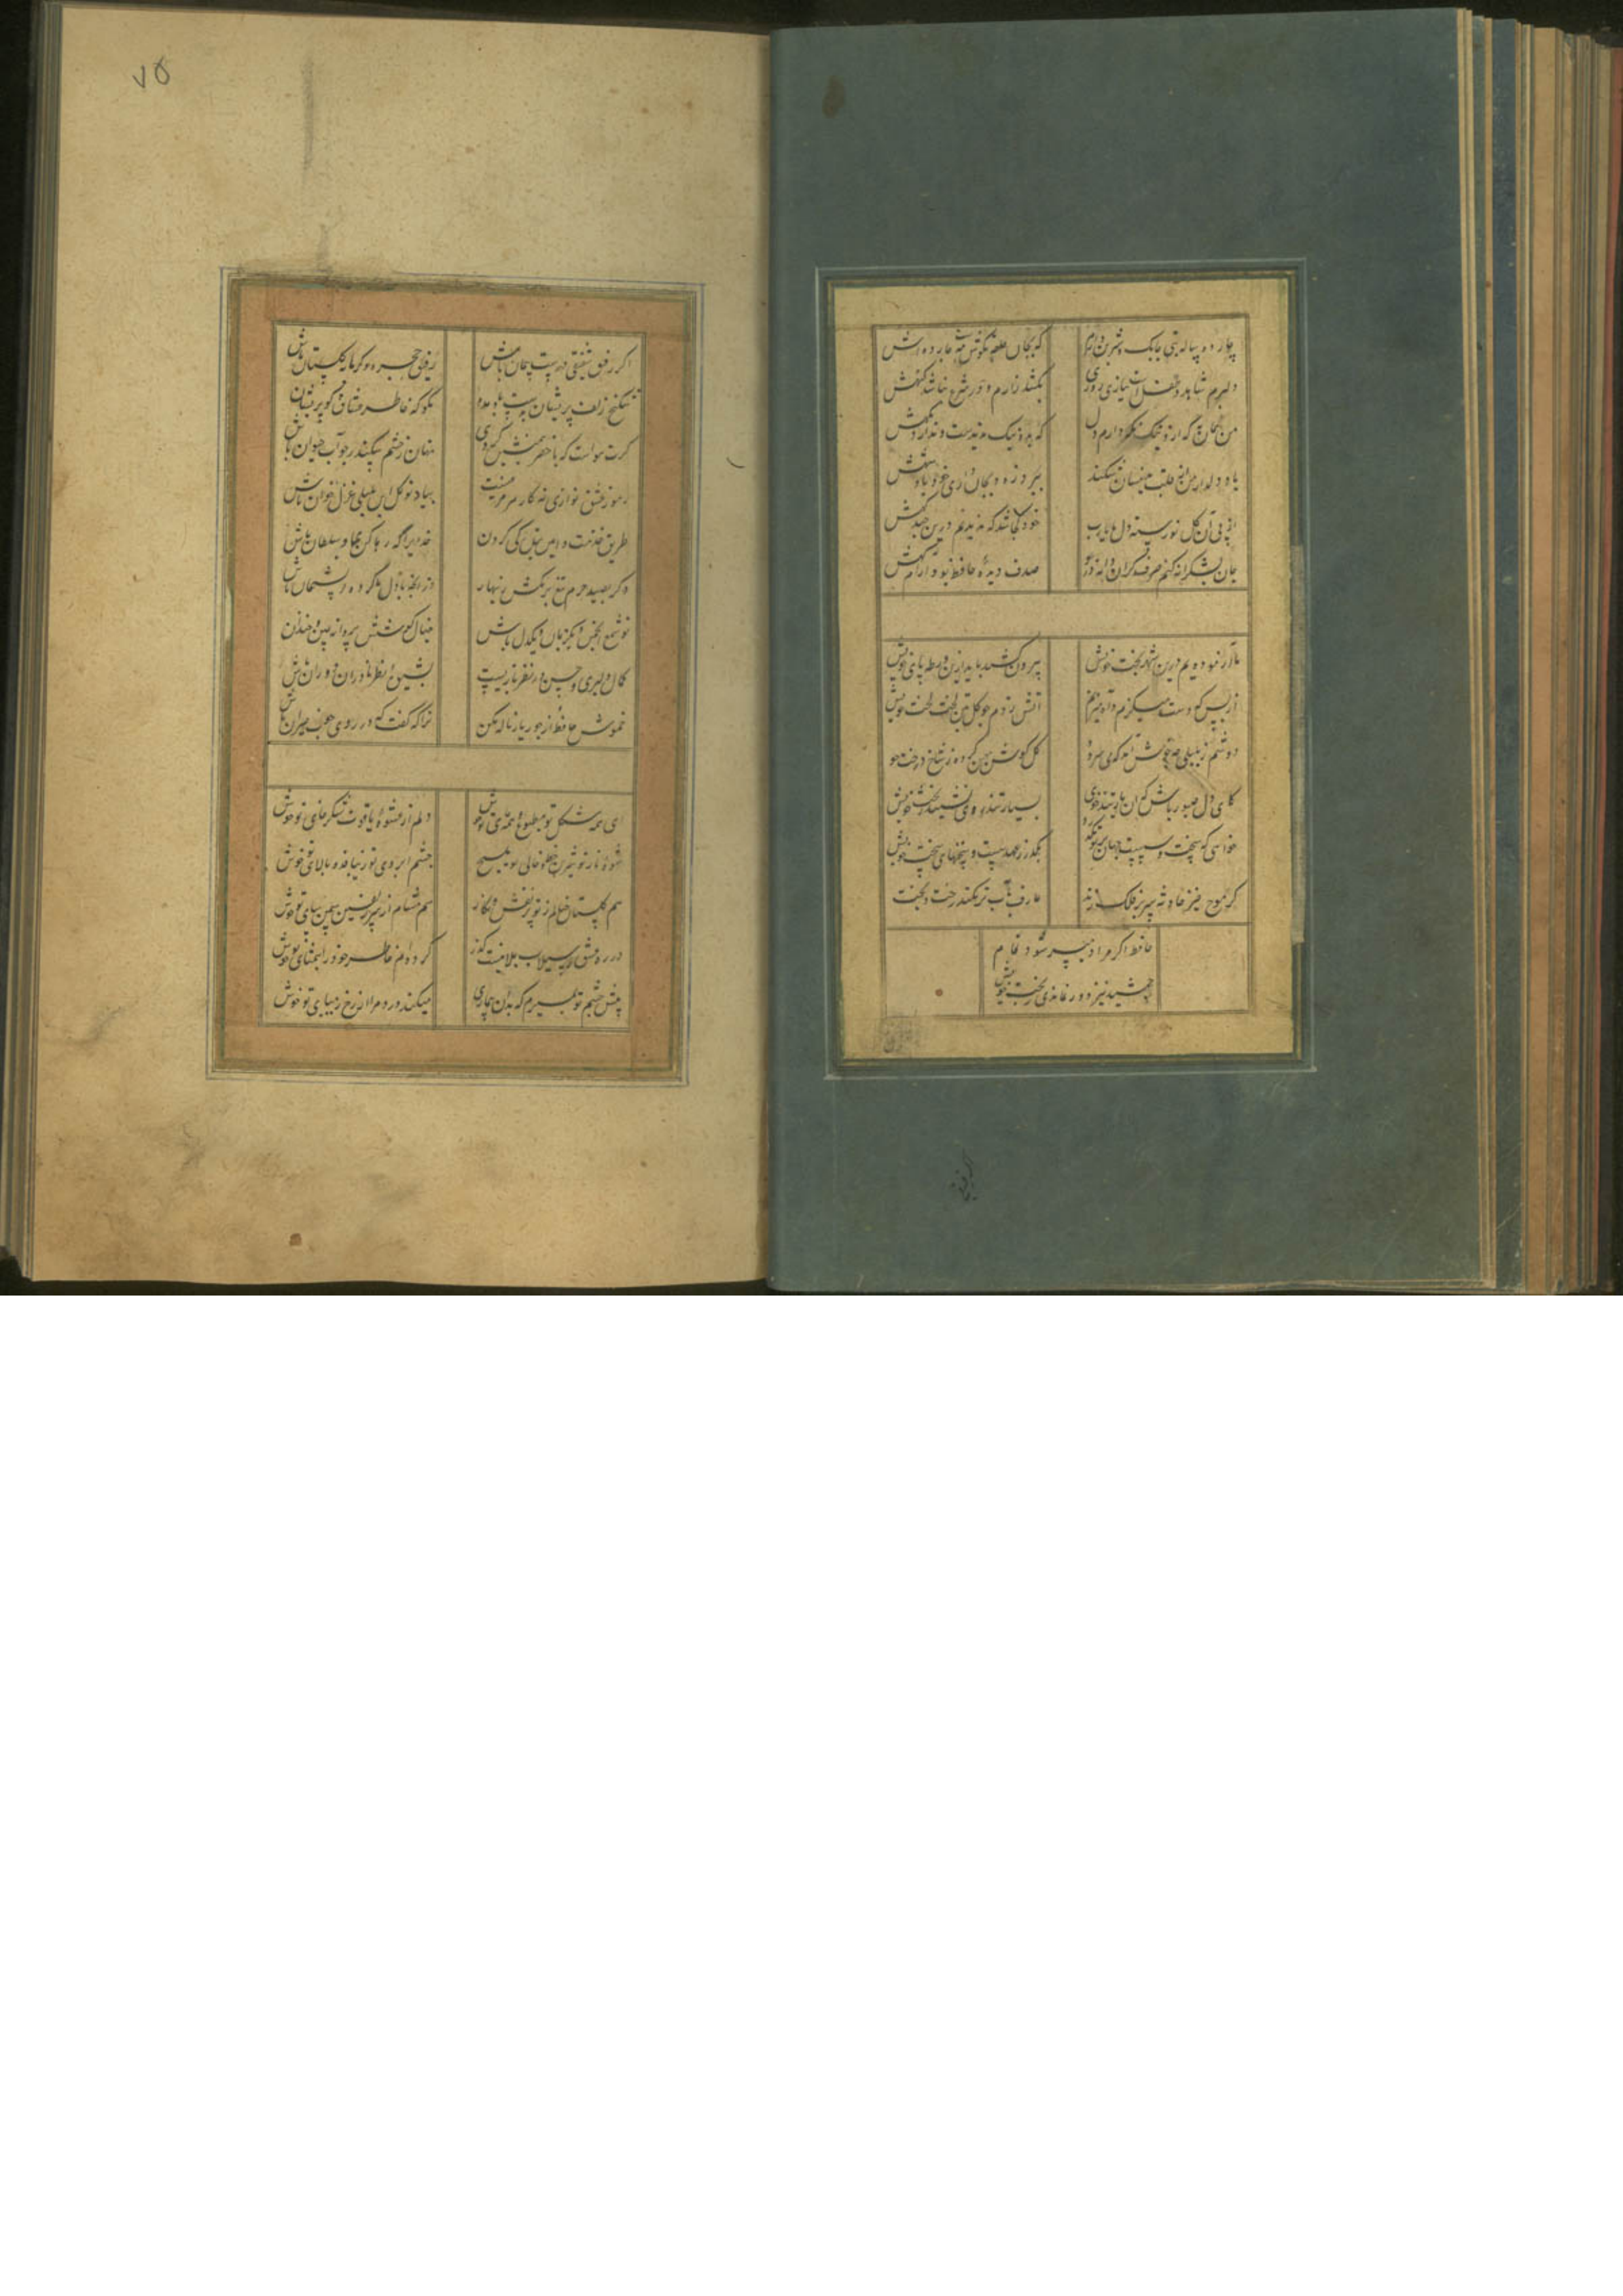 چارده ساله بتی چابک و شیرین دارم
که بجان حلقه بگوشست مه چارده اش
دلبرم شاهد و طفلست ببازی روزی
بکشد زارم و در شرع نباشد گنهش
من همان به که ازو نیک نگه دارم دل
که بد و نیک ندیدست و ندارد نگهش
یار دلدار من ار قلب بدینسان شکند
ببرد زود بجان داری خود پادشهش
از پی آن گل نورسته دل ما یارب
خود کجا شد که ندیدیم درین چندگهش
جان بشکرانه کنم صرف گر آن دانه در
صدف دیده حافظ بود آرامگهش
ما آزموده ایم درین شهر بخت خویش
بیرون کشید باید ازین ورطه خویش
از بس که دست میگزم و آه میزنم
آتش زدم چو گل بتن لخت لخت خویش
دوشم ز بلبلی چه خوش آمد که می سرود
گل گوش پهن کرده ز شاخ درخت خو
کای دل صبور باش که آن یار تندخوی
بسیار تند روی نشیند ز بخت خویش
خواهی که سخت و سست جهان بر تو بگذرد
بگذر ز عهد سست و سخنهای سخت خویش
گر موج خیز حادثه سر بر فلک زند
عارف بآب تر نکند رخت و بخت
حافظ اگر مراد میسر شود مدام
جمشید نیز دور نماندی ز بخت خویش
۷۵
اگر رفیق شفیقی درست پیمان باش
رفیق حجره و گرمابه و گلستان باش
شکنج زلف پریشان بدست باد مده
مگو که خاطر عشاق گو پریشان
گرت هواست که با خضر همنشین گردی
نهان ز چشم سکندر چو آب حیوان باش
رموز عشق نوازی نه کار هر مرغیست
بیا و نوگل این بلبلی غزل خوان باش
طریق خدمت و آیین بندگی کردن
خدایرا که رها کن بما و سلطان باش
دگر بصید حرم تیغ برمکش زنهار
و ز آنچه با دل ما کرده پشیمان باش
تو شمع انجمنی یکزبان و یکدل باش
خیال کوشش پروانه بین و خندان
کمال دلبری و حسن در نظر بازیست
بشیوه نظر از نادران دوران باش
خموش حافظ از جور یار ناله مکن
ترا که گفت که در روی خوب حیران باش
ای همه شکل تو مطبوع و همه جای تو خوش
دلم از عشوه یاقوت شکرخای تو خوش
شیوه ناز تو شیرین خط و خال تو ملیح
چشم ابروی تو زیبا قد و بالای تو خوش
هم گلستان خیالم ز تو پر نقش و نگار
هم مشام از سر زلفین سمن سای تو خوش
در ره عشق که از سیلاب بلا نیست گذر
کرده ام خاطر خود را بتمنای تو خوش
پیش چشم تو بمیرم که بدان بیماری
میکند درد مرا از رخ زیبای تو خوش